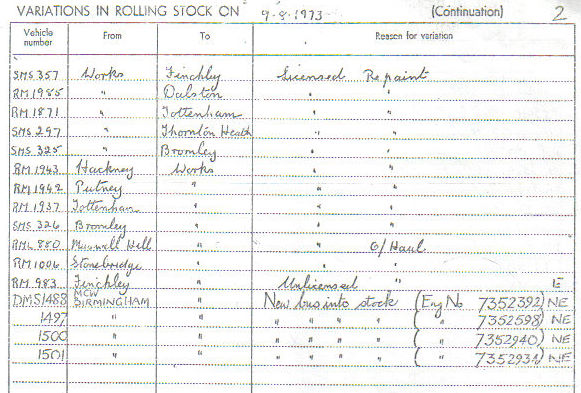 VARIATIONS IN ROLLING STOCK ON 9-8-1973 (Continuation) 2
Vehicle number From To Reason for variation
SMS 357 Works Finchley Licensed Repaint
RM 1985 " Dalston " "
RM 1871 " Tottenham " "
SMS 297 " Thornton Heath " "
SMS 325 " Bromley " "
RM 1943 Hackney Works " "
RM 1942 Putney " " "
RM 1937 Tottenham " " "
SMS 326 Bromley " " "
RML 880 Muswell Hill " " O/Haul
RM 1006 Stonebridge " " "
RM 983 Finchley " Unlicensed " E
DMS1488 MCW BIRMINGHAM " New bus into stock (Eng No 7352392) NE
1497 " " " " " " ( " 7352598) NE
1500 " " " " " " ( " 7352940) NE
1501 " " " " " " ( " 7352934) NE